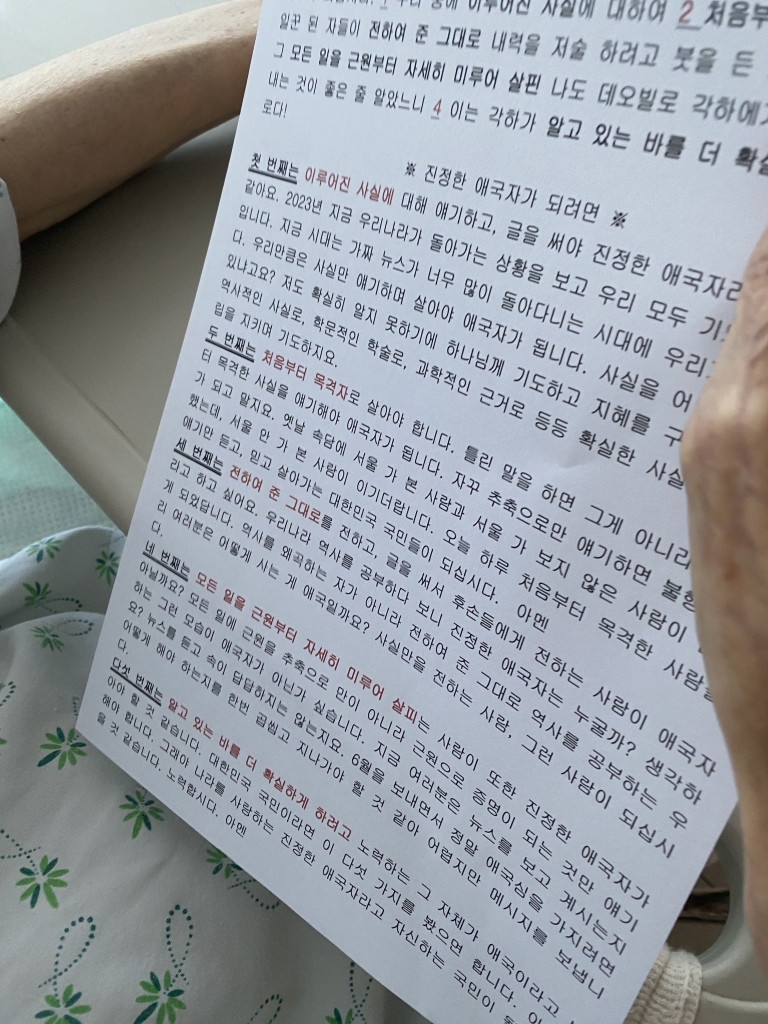 우리 중에 이루어진 사실에 대하여 2 처음부
일꾼 된 자들이 전하여 준 그대로 내력을 저술 하려고 붓을 든
그 모든 일을 근원부터 자세히 미루어 살핀 나도 데오빌로 각하에게
내는 것이 좋은 줄 알았느니 4 이는 각하가 알고 있는 바를 더 확실
로다!
※ 진정한 애국자가 되려면 ※
첫 번째는 이루어진 사실에 대해 얘기하고, 글을 써야 진정한 애국자라
같아요. 2023년 지금 우리나라가 돌아가는 상황을 보고 우리 모두 기
입니다. 지금 시대는 가짜 뉴스가 너무 많이 돌아다니는 시대에 우리
다. 우리만큼은 사실만 얘기하며 살아야 애국자가 됩니다. 사실을 어
있냐고요? 저도 확실히 알지 못하기에 하나님께 기도하고 지혜를 구
역사적인 사실로, 학문적인 학술로, 과학적인 근거로 등등 확실한 사실
립을 지키며 기도하지요.
두 번째는 처음부터 목격자로 살아야 합니다. 틀린 말을 하면 그게 아니라
터 목격한 사실을 얘기해야 애국자가 됩니다. 자꾸 추축으로만 얘기하면 불행
가 되고 말지요. 옛날 속담에 서울 가 본 사람과 서울 가 보지 않은 사람이
했는데, 서울 안 가 본 사람이 이기더랍니다. 오늘 하루 처음부터 목격한 사람들
얘기만 듣고, 믿고 살아가는 대한민국 국민들이 되십시다. 아멘
세 번째는 전하여 준 그대로를 전하고, 글을 써서 후손들에게 전하는 사람이 애국자
라고 하고 싶어요. 우리나라 역사를 공부하다 보니 진정한 애국자는 누굴까? 생각하
게 되었답니다. 역사를 왜곡하는 자가 아니라 전하여 준 그대로 역사를 공부하는 우
리 여러분은 어떻게 사는 게 애국일까요? 사실만을 전하는 사람, 그런 사람이 되십시
다.
네 번째는 모든 일을 근원부터 자세히 미루어 살피는 사람이 또한 진정한 애국자가
아닐까요? 모든 일에 근원을 추축으로 만이 아니라 근원으로 증명이 되는 것만 얘기
하는 그런 모습이 애국자가 아닌가 싶습니다. 지금 여러분은 뉴스를 보고 계시는지
요? 뉴스를 듣고 속이 답답하지는 않는지요. 6월을 보내면서 정말 애국심을 가지려면
어떻게 해야 하는지를 한번 곱씹고 지나가야 할 것 같아 어렵지만 메시지를 보냅니
다.
다섯 번째는 알고 있는 바를 더 확실하게 하려고 노력하는 그 자체가 애국이라고
아야 할 것 같습니다. 대한민국 국민이라면 이 다섯 가지를 봤으면 합니다.
해야 합니다. 그래야 나라를 사랑하는 진정한 애국자라고 자신하는 국민이
을 것 같습니다. 노력합시다. 아멘